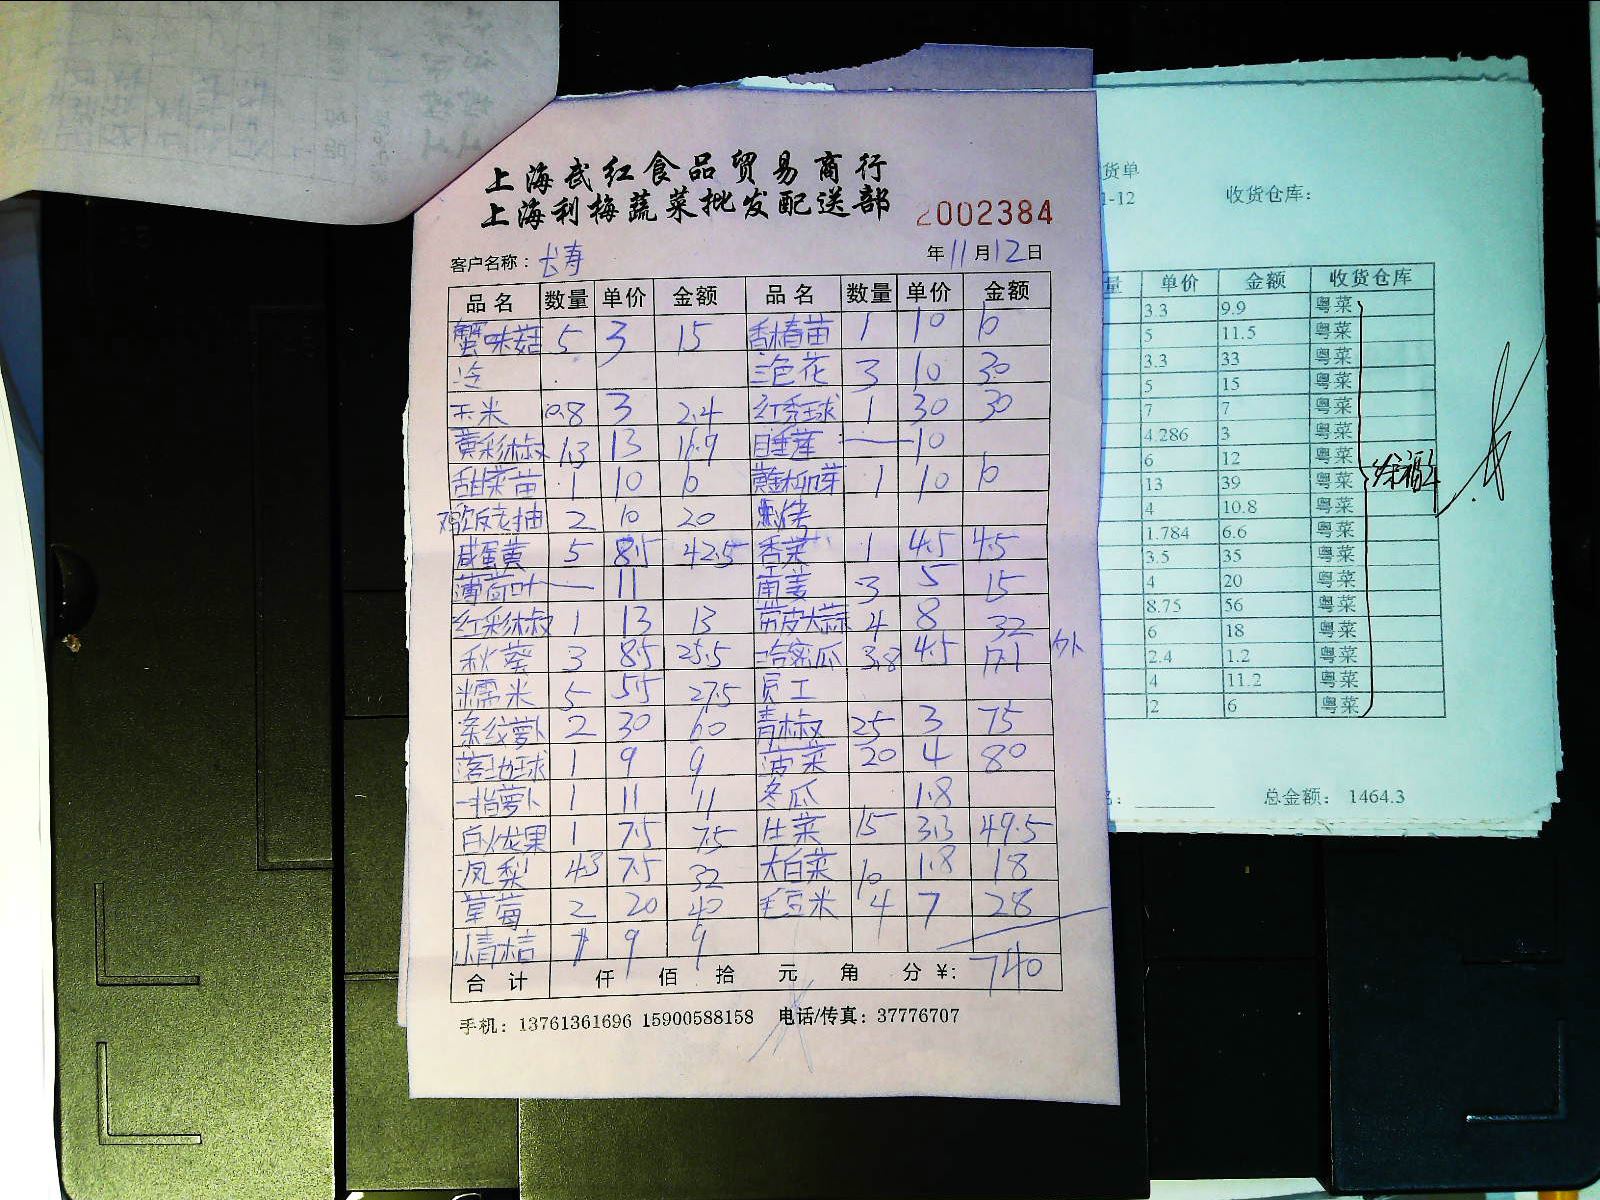 上海武红食品贸易商行
上海利梅蔬菜批发配送部 2002384
客户名称：长寿 年11月12日
品名 数量 单价 金额 品名 数量 单价 金额
蟹味菇 5 3 15 香椿苗 1 10 10
冷 三色花 3 10 30
玉米 0.8 3 2.4 红秀球 1 30 30
黄彩椒 1.3 13 16.9 睡莲 — 10
甜菜苗 1 10 10 黄金柳芽 1 10 10
鸡饭老抽 2 10 20
咸蛋黄 5 8.5 42.5 香菜 1 4.5 4.5
薄荷叶 — 11 南姜 3 5 15
红彩椒 1 13 13 带皮大蒜 4 8 32
秋葵 3 8.5 25.5 哈密瓜 3.8 4.5 17.1 外
糯米 5 5.5 27.5 员工
条纹萝卜 2 30 60 青椒 25 3 75
落地球 1 9 9 菠菜 20 4 80
一指萝卜 1 11 11 冬瓜 1.8
白火龙果 1 7.5 7.5 生菜 15 3.3 49.5
凤梨 4.3 7.5 32 大白菜 10 1.8 18
草莓 2 20 40 毛豆米 4 7 28
小青桔 1 9 9
合计 仟 佰 拾 元 角 分 ¥: 740
手机：13761361696 15900588158 电话/传真：37776707
货单
1-12 收货仓库：
量 单价 金额 收货仓库
3.3 9.9 粤菜
5 11.5 粤菜
3.3 33 粤菜
5 15 粤菜
7 7 粤菜
4.286 3 粤菜
6 12 粤菜
13 39 粤菜
4 10.8 粤菜
1.784 6.6 粤菜
3.5 35 粤菜
4 20 粤菜
8.75 56 粤菜
6 18 粤菜
2.4 1.2 粤菜
4 11.2 粤菜
2 6 粤菜
总金额： 1464.3